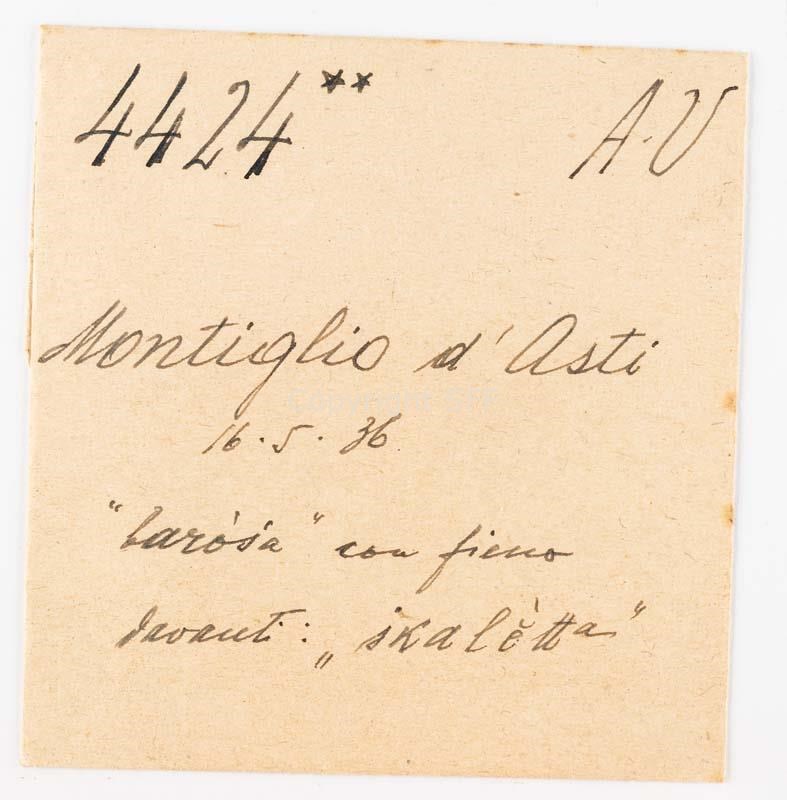 4424** A.V
Montiglio d'Asti
16.5.36
"baròs̓a" con fieno
davanti: „skalĕ̀tta"